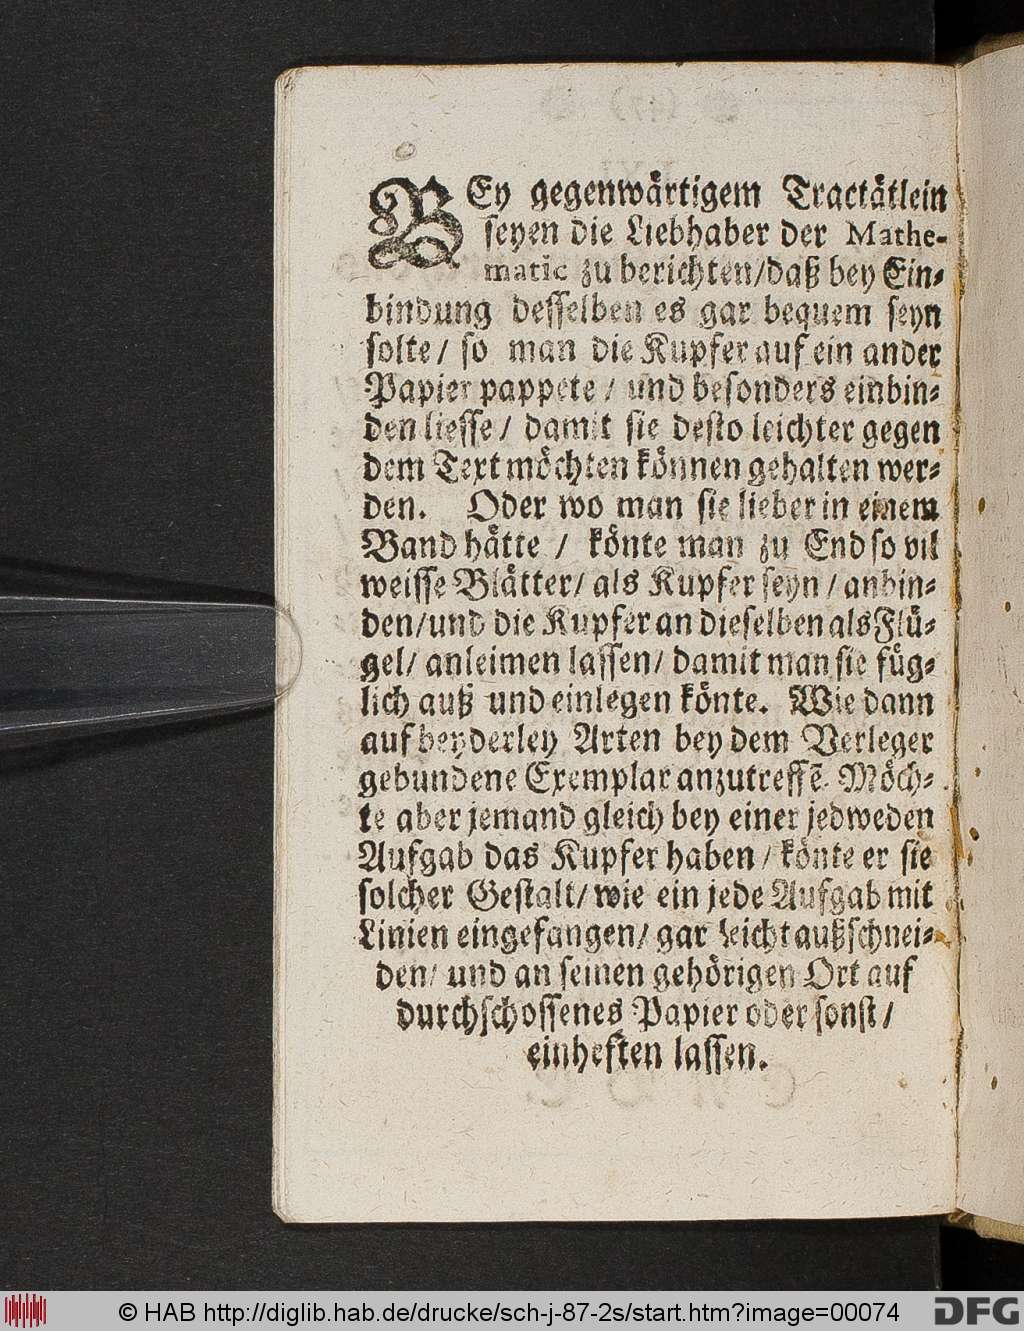 BEy gegenwärtigem Tractätlein
seyen die Liebhaber der Mathe-
matic zu berichten/daß bey Ein-
bindung desselben es gar bequem seyn
solte/ so man die Kupfer auf ein ander
Papier pappete / und besonders einbin-
den liesse/ damit sie desto leichter gegen
dem Text möchten können gehalten wer-
den. Oder wo man sie lieber in einem
Band hätte / könte man zu End so vil
weisse Blätter/ als Kupfer seyn / anbin-
den/und die Kupfer an dieselben als Flü-
gel/ anleimen lassen/ damit man sie füg-
lich auß und einlegen könte. Wie dann
auf beyderley Arten bey dem Verleger
gebundene Exemplar anzutreffē. Möch-
te aber jemand gleich bey einer jedweden
Aufgab das Kupfer haben / könte er sie
solcher Gestalt/ wie ein jede Aufgab mit
Linien eingefangen/ gar leicht außschnei-
den/ und an seinen gehörigen Ort auf
durchschossenes Papier oder sonst /
einheften lassen.
© HAB http://diglib.hab.de/drucke/sch-j-87-2s/start.htm?image=00074
DFG